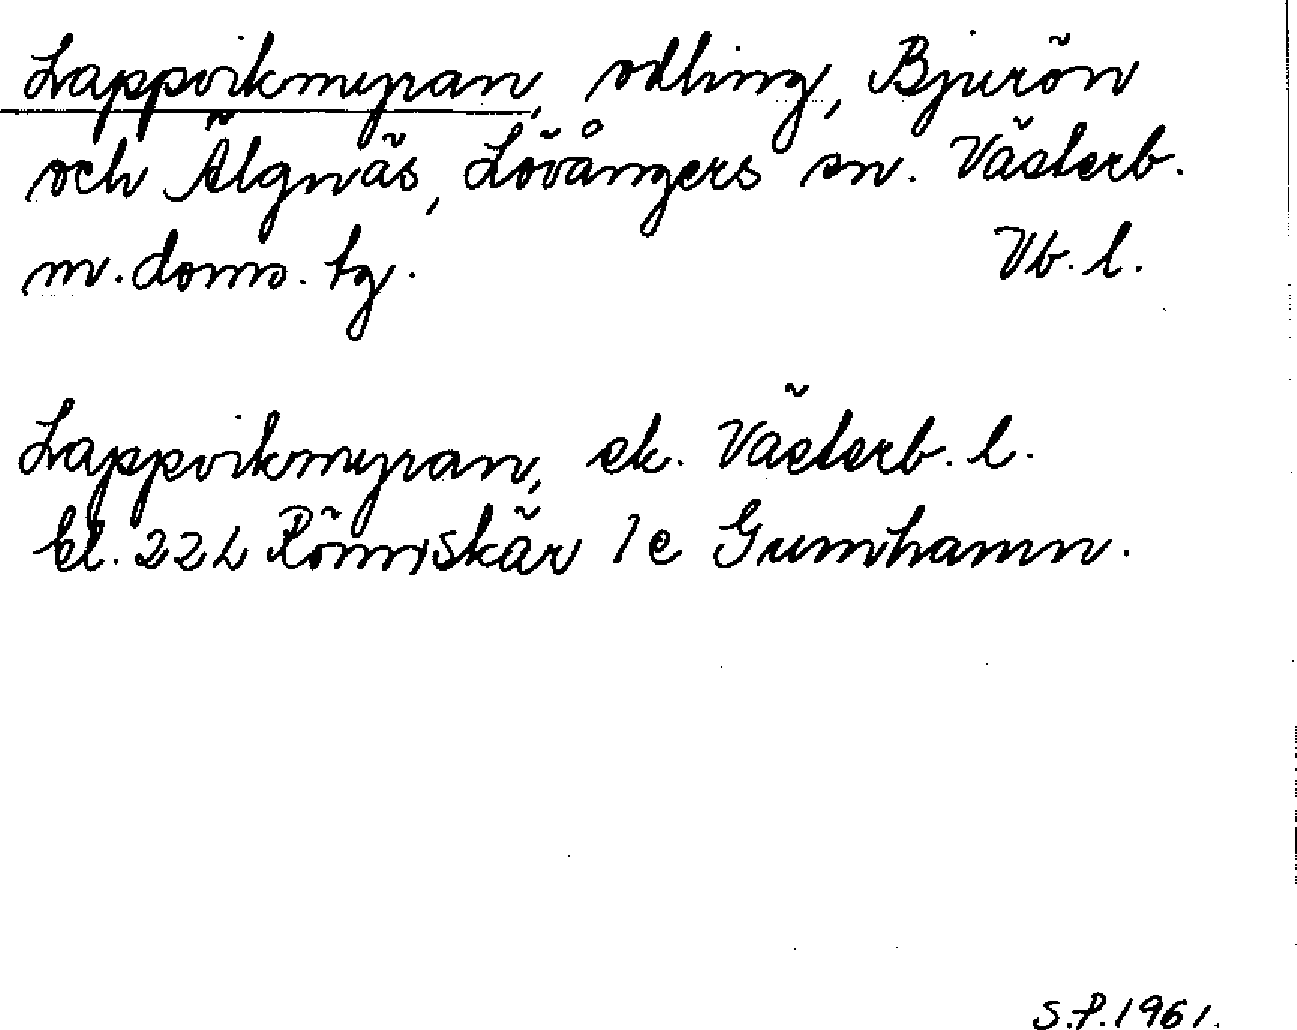 Lappvikmyran, odling, Bjurön
och Älgnäs, Lövångers sn. Västerb.
m. doms. tg. Vb. l.
Lappvikmyran, ek. Västerb. l.
bl. 22L Rönnskär 1e Gumhamn.
S.P. 1961.